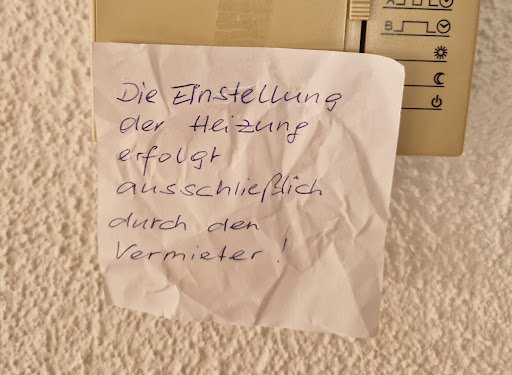 A
B
Die Einstellung
der Heizung
erfolgt
ausschließlich
durch den
Vermieter!